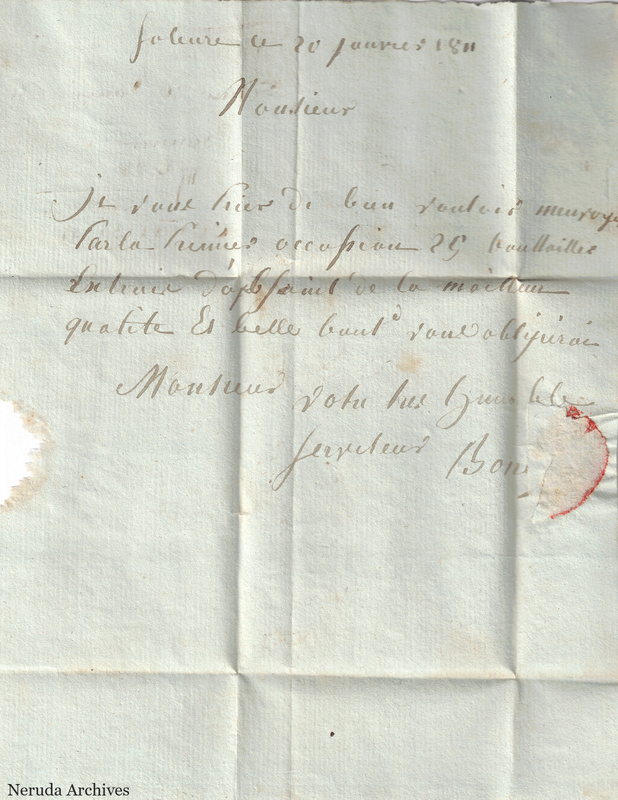 Soleure Le 20 janvier 1811
Monsieur
Je vous prie de bien vouloir menvoye
par la premier occassion 25 bouttailles
Extrait d'apssaint de la meillieur
qualité Et belle bont vous obligerai
Monsieur votre tres humble
serviteur Bom
Neruda Archives